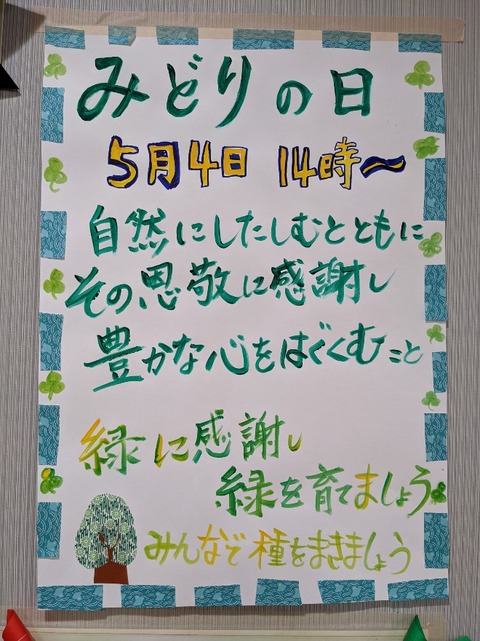 みどりの日
5月4日 14時〜
自然にしたしむとともに
その思敬に感謝し
豊かな心をはぐくむこと
緑に感謝し
緑を育てましょう
みんなで種をまきましょう